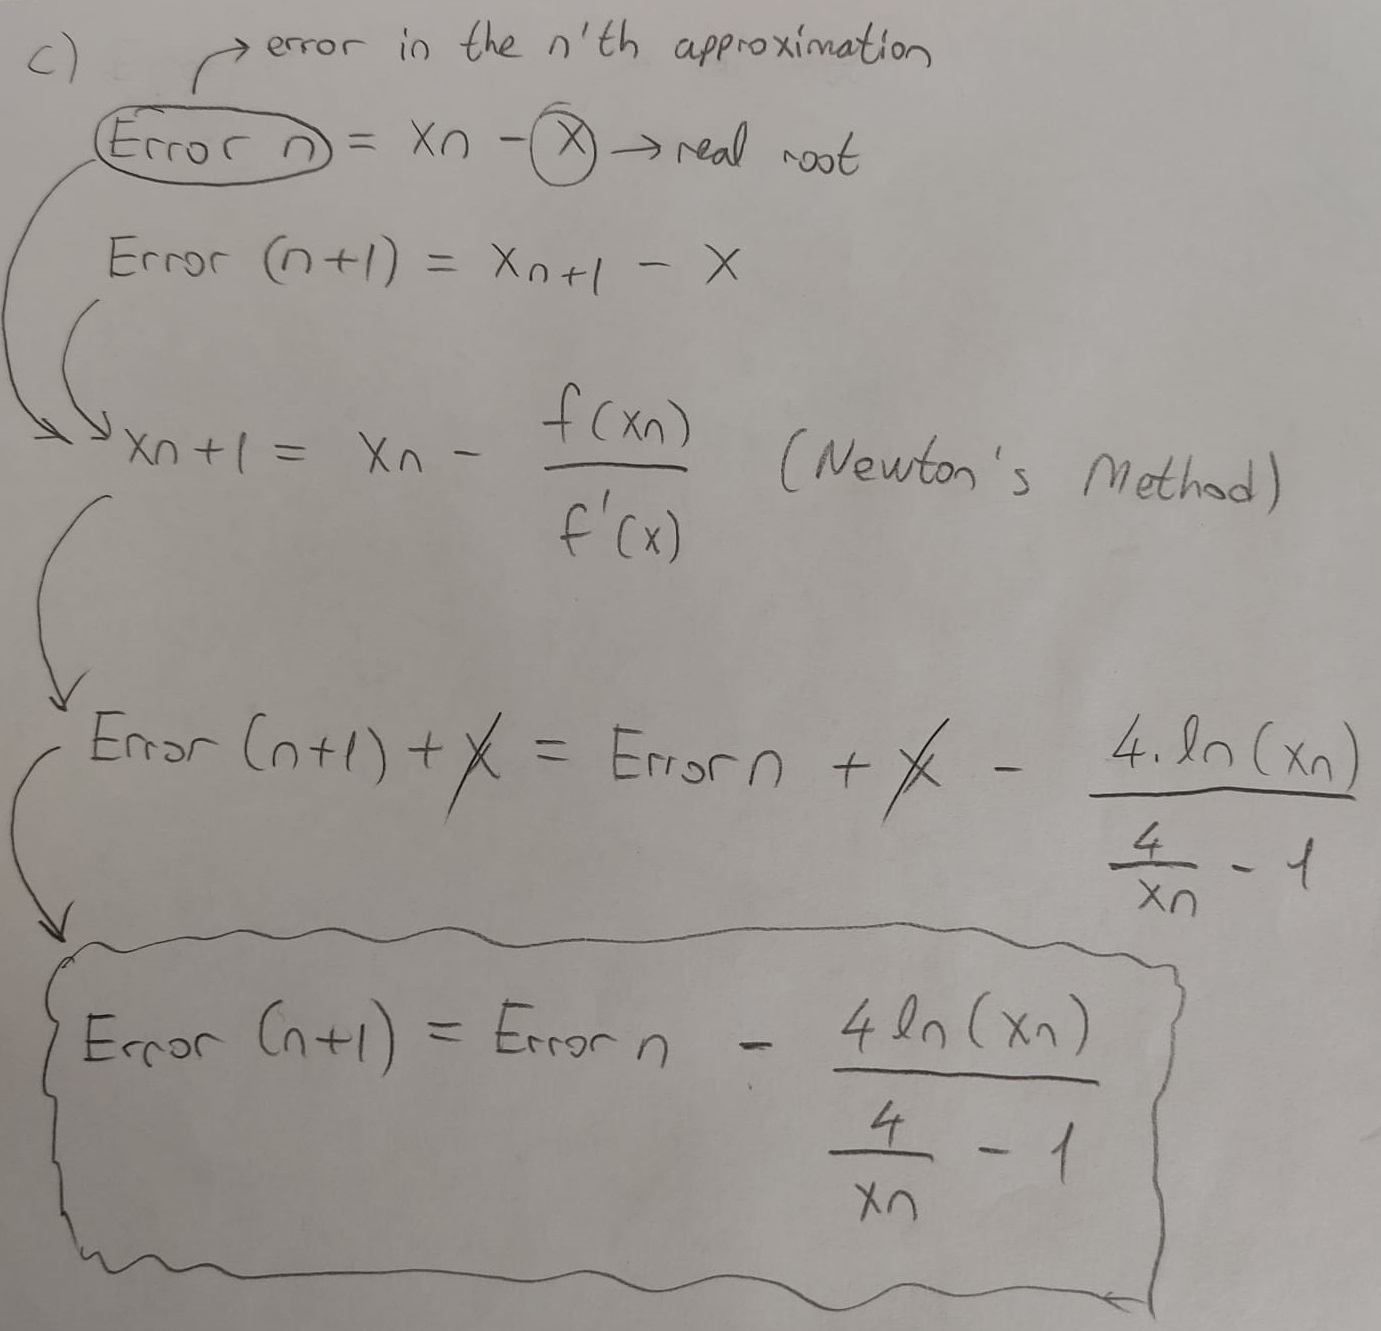 c) → error in the n'th approximation
Error n = xn - x → real root
Error (n+1) = xn+1 - x
xn+1 = xn - f(xn) / f'(x) (Newton's Method)
Error (n+1) + x = Error n + x - 4.ln(xn) / (4/xn - 1)
Error (n+1) = Error n - 4 ln(xn) / (4/xn - 1)